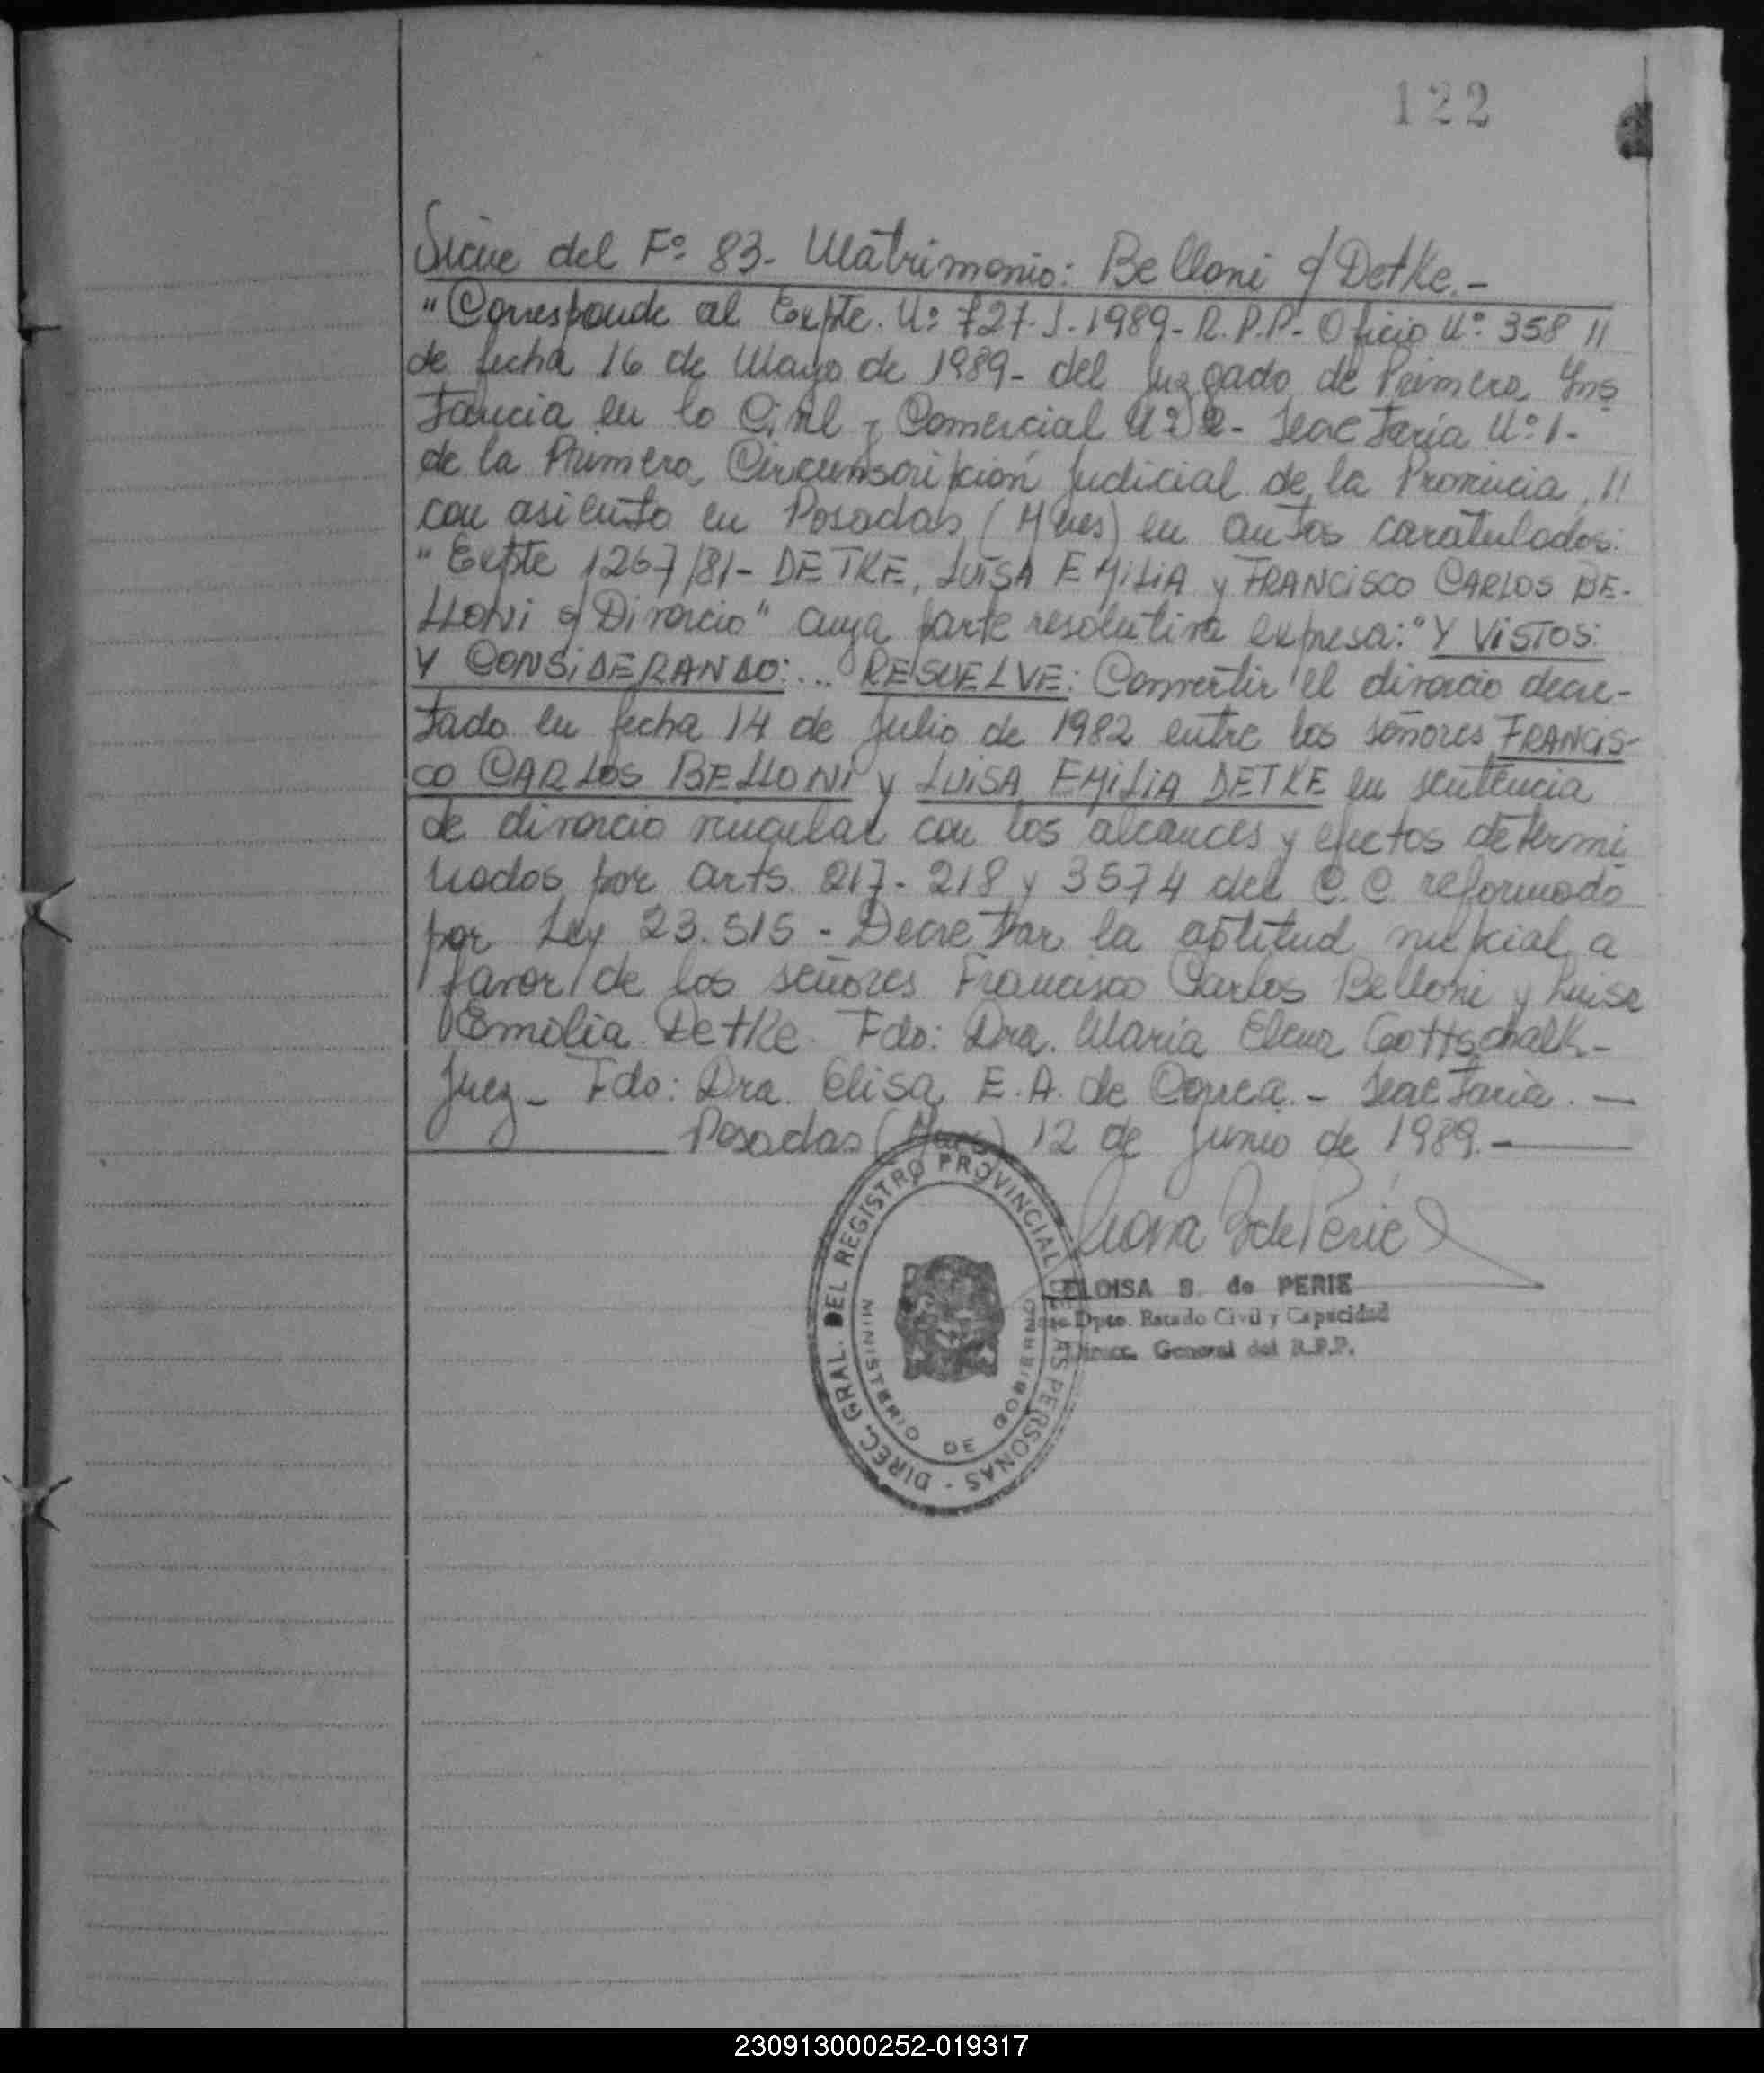 122
Sigue del Fº 83- Matrimonio: Belloni c/ Detke.-
"Corresponde al Expte. Nº 727-J-1989- R.P.P- Oficio Nº 358 //
de fecha 16 de Mayo de 1989- del Juzgado de Primera Ins
tancia en lo Civil y Comercial Nº 2- Secretaría Nº 1-
de la Primera Circunscripción Judicial de la Provincia, //
con asiento en Posadas (Mnes) en autos caratulados:
"Expte 1267/81- DETKE, LUISA EMILIA y FRANCISCO CARLOS BE-
LLONI s/ Divorcio" cuya parte resolutiva expresa: "Y VISTOS:
Y CONSIDERANDO:... RESUELVE: Convertir el divorcio decre-
tado en fecha 14 de Julio de 1982 entre los señores FRANCIS-
CO CARLOS BELLONI y LUISA EMILIA DETKE en sentencia
de divorcio vincular con los alcances y efectos determi
nados por arts. 217- 218 y 3574 del C.C. reformado
por Ley 23.515 - Decretar la aptitud nupcial a
favor de los señores Francisco Carlos Belloni y Luisa
Emilia Detke. Fdo: Dra. María Elena Gottschalk.-
Juez- Fdo: Dra. Elisa E.A. de Correa.- Secretaria.-
Posadas (Mnes) 12 de Junio de 1989.-
DIREC. GRAL. DEL REGISTRO PROVINCIAL DE LAS PERSONAS -
MINISTERIO DE GOBIERNO
ELOISA S. de PERIE
Dpto. Estado Civil y Capacidad
Direcc. General del R.P.P.
230913000252-019317